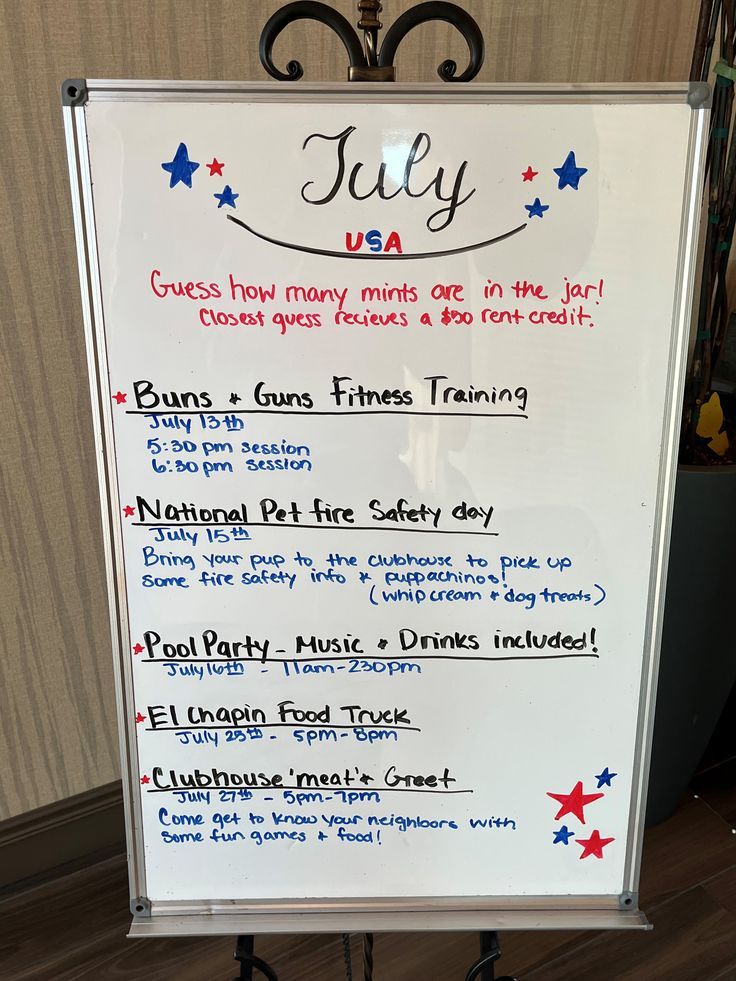 July
USA
Guess how many mints are in the jar!
Closest guess recieves a $50 rent credit.
Buns & Guns Fitness Training
July 13th
5:30 pm session
6:30 pm session
National Pet fire Safety day
July 15th
Bring your pup to the clubhouse to pick up
some fire safety info & puppachinos!
(whip cream & dog treats)
Pool Party - Music & Drinks included!
July 16th - 11am-230pm
El Chapin Food Truck
July 25th - 5pm-8pm
Clubhouse 'meat' & Greet
July 27th - 5pm-7pm
Come get to know your neighbors with
some fun games & food!